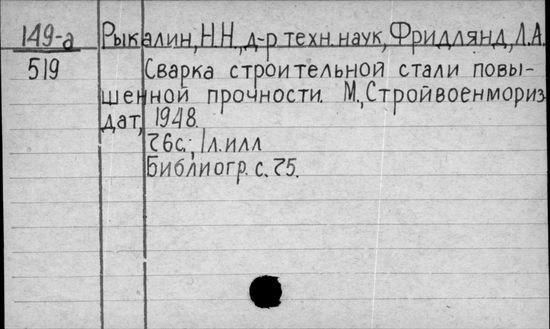 149-а Рыкалин, Н.Н., д-р техн. наук, Фридлянд, Л.А.
519 Сварка строительной стали повы-
шенной прочности. М., Стройвоенмориз
дат, 1948.
76с.; 1л. илл
Библиогр. с. 75.